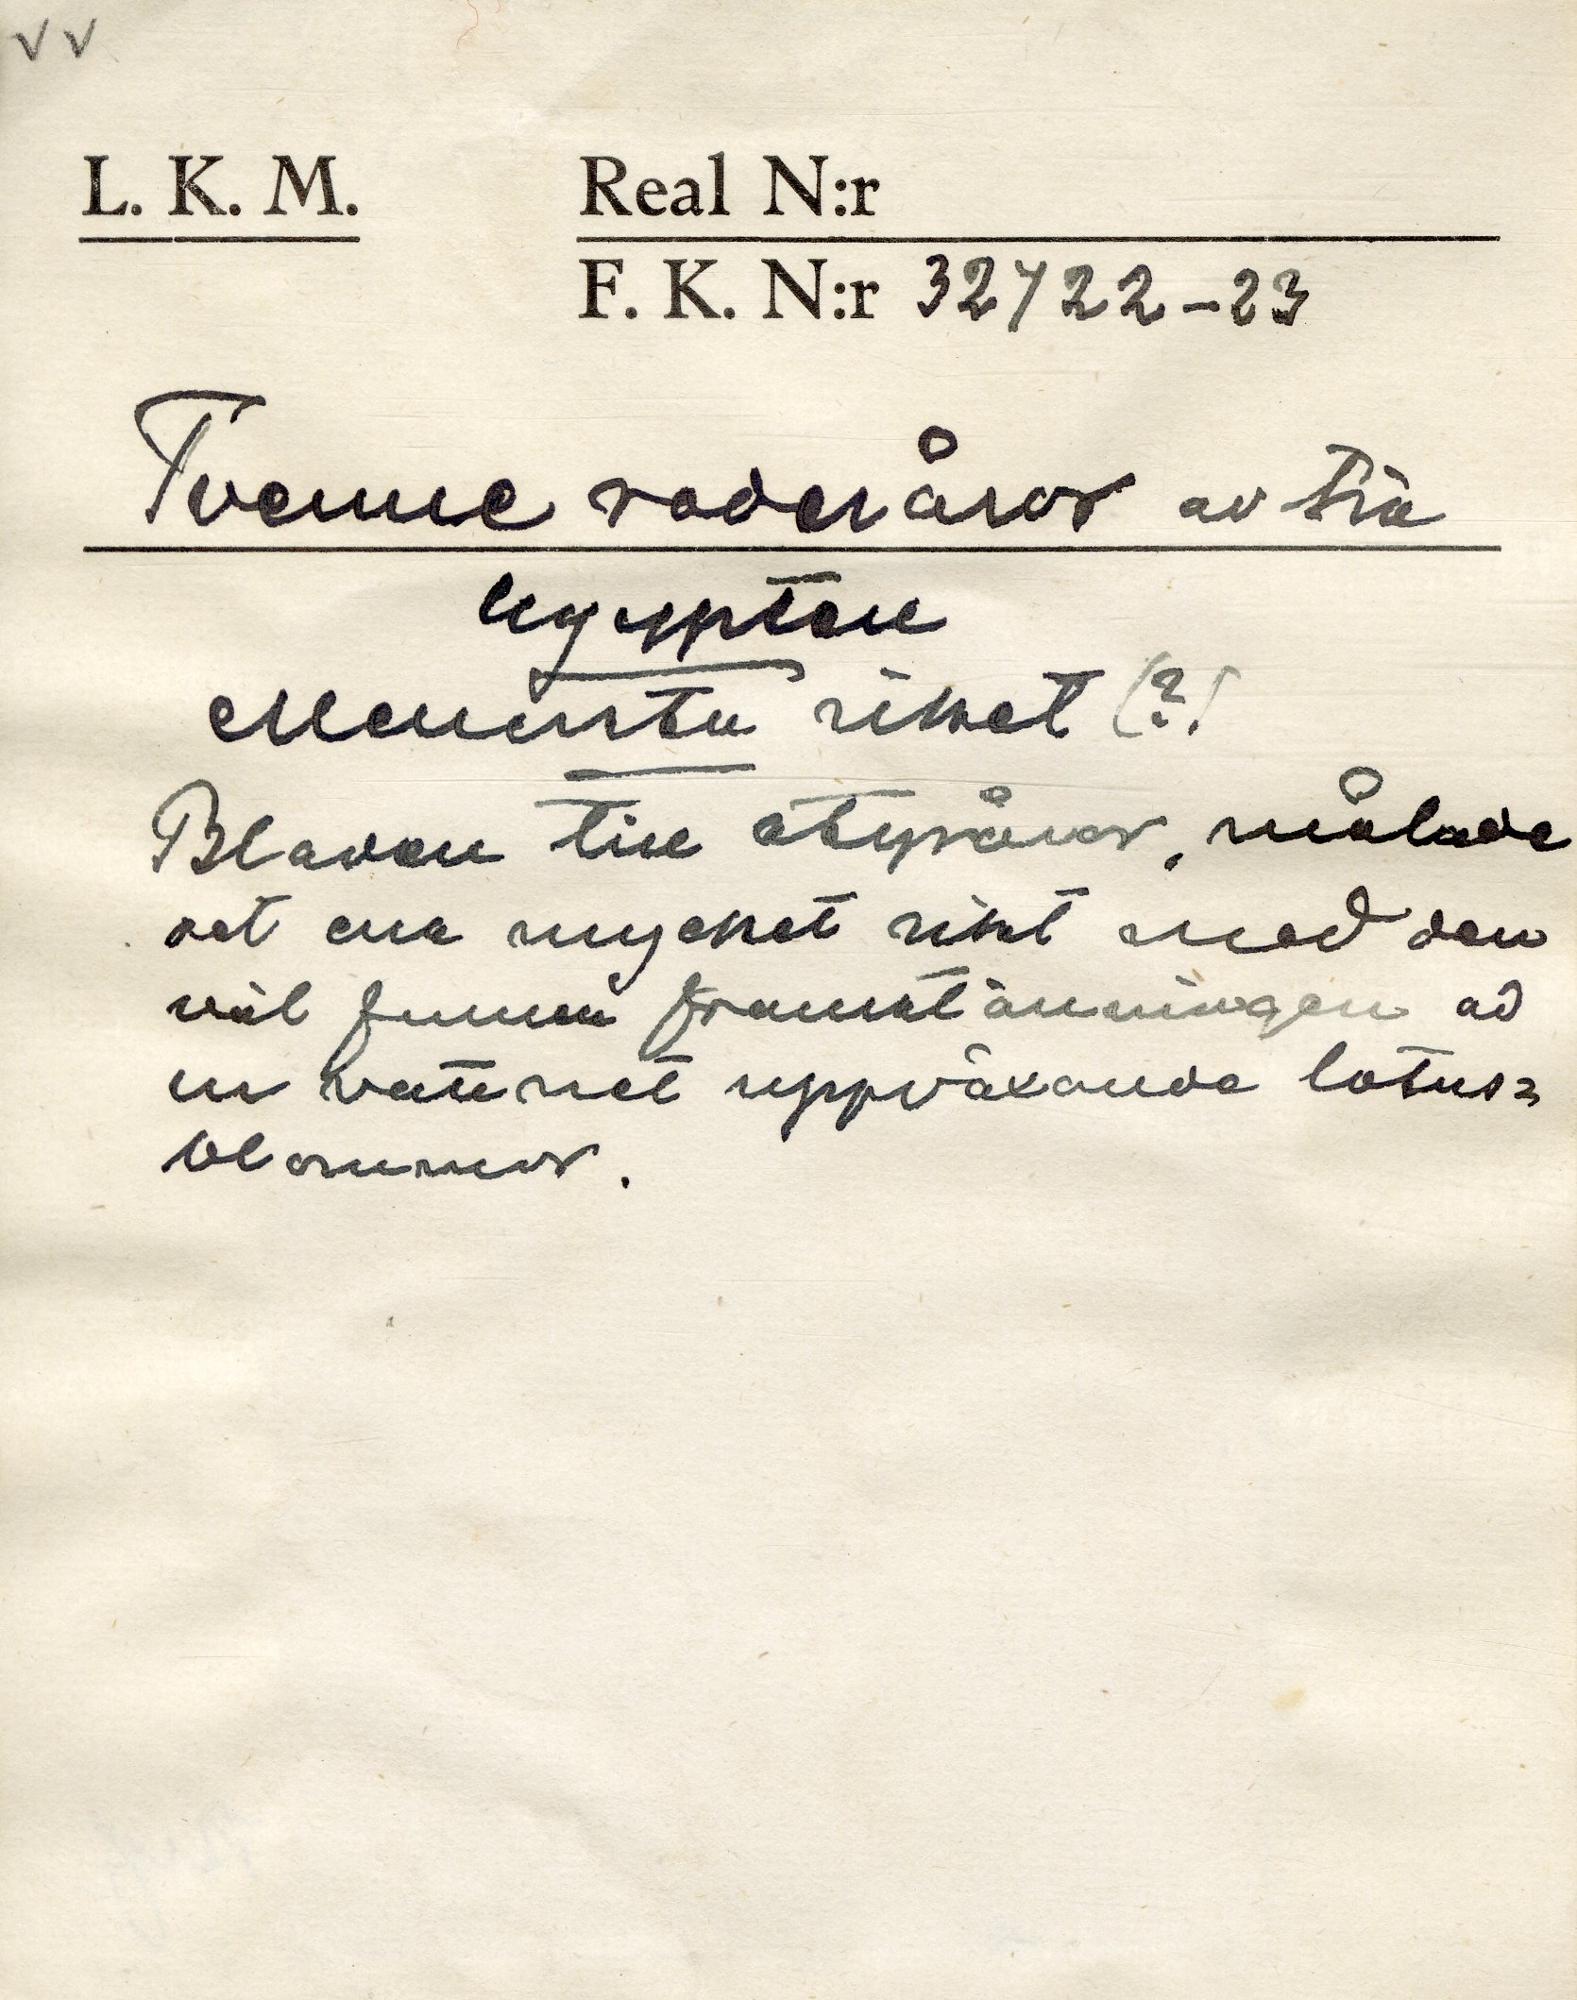 √√
L. K. M.
Real N:r
F. K. N:r 32722-23
Tvenne roderåror av trä
Egypten
Mellersta riket (?)
Bladen till styråror, målade
det ena mycket rikt med den
väl funna framställningen av
ur vattnet uppväxande lotus=
blommor.